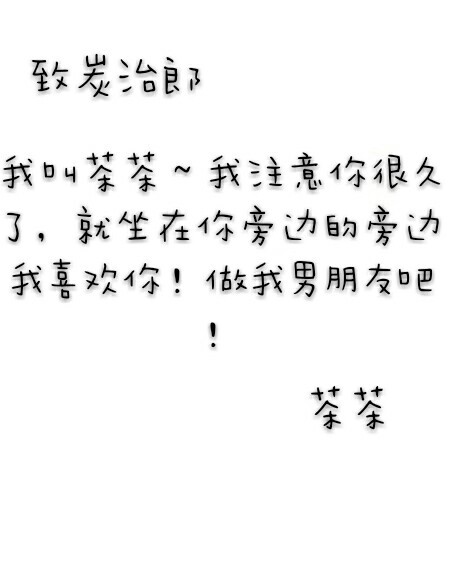 致炭治郎
我叫茶茶~我注意你很久
了，就坐在你旁边的旁边
我喜欢你！做我男朋友吧
！
茶茶